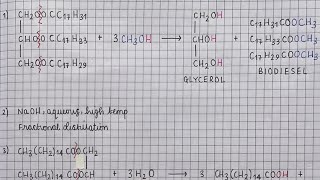 1) CH₂OOCC₁₇H₃₁ CH₂OH C₁₇H₃₁COOCH₃
CHOOCC₁₇H₃₃ + 3CH₃OH → CHOH + C₁₇H₃₃COOCH₃
CH₂OOCC₁₇H₂₉ CH₂OH C₁₇H₂₉COOCH₃
GLYCEROL BIODIESEL
2) NaOH, aqueous, high temp
Fractional distillation
3) CH₃(CH₂)₁₄COOCH₂
CH₃(CH₂)₁₄COOCH + 3H₂O → 3 CH₃(CH₂)₁₄COOH +